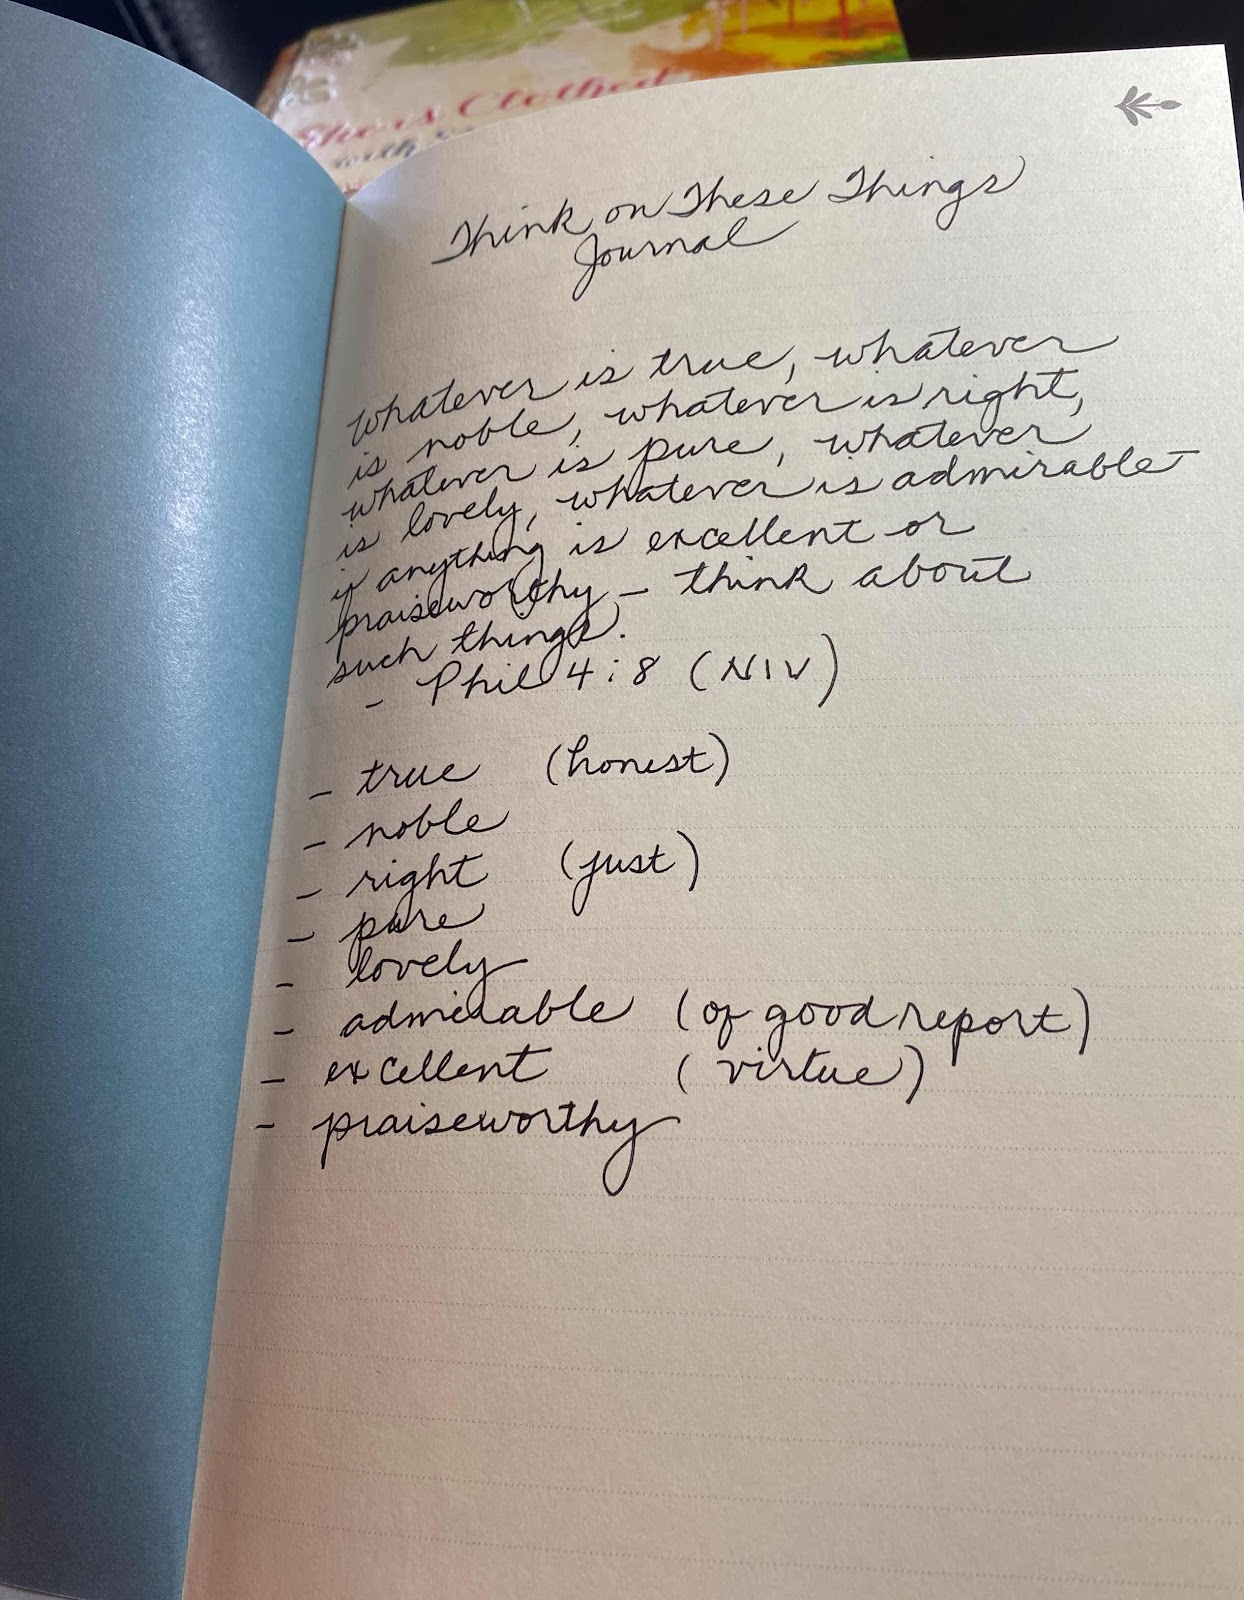 She is Clothed
with
Think on These Things
Journal
whatever is true, whatever
is noble, whatever is right,
whatever is pure, whatever
is lovely, whatever is admirable -
if anything is excellent or
praiseworthy - think about
such things.
- Phil 4:8 (NIV)
- true (honest)
- noble
- right (just)
- pure
- lovely
- admirable (of good report)
- excellent (virtue)
- praiseworthy